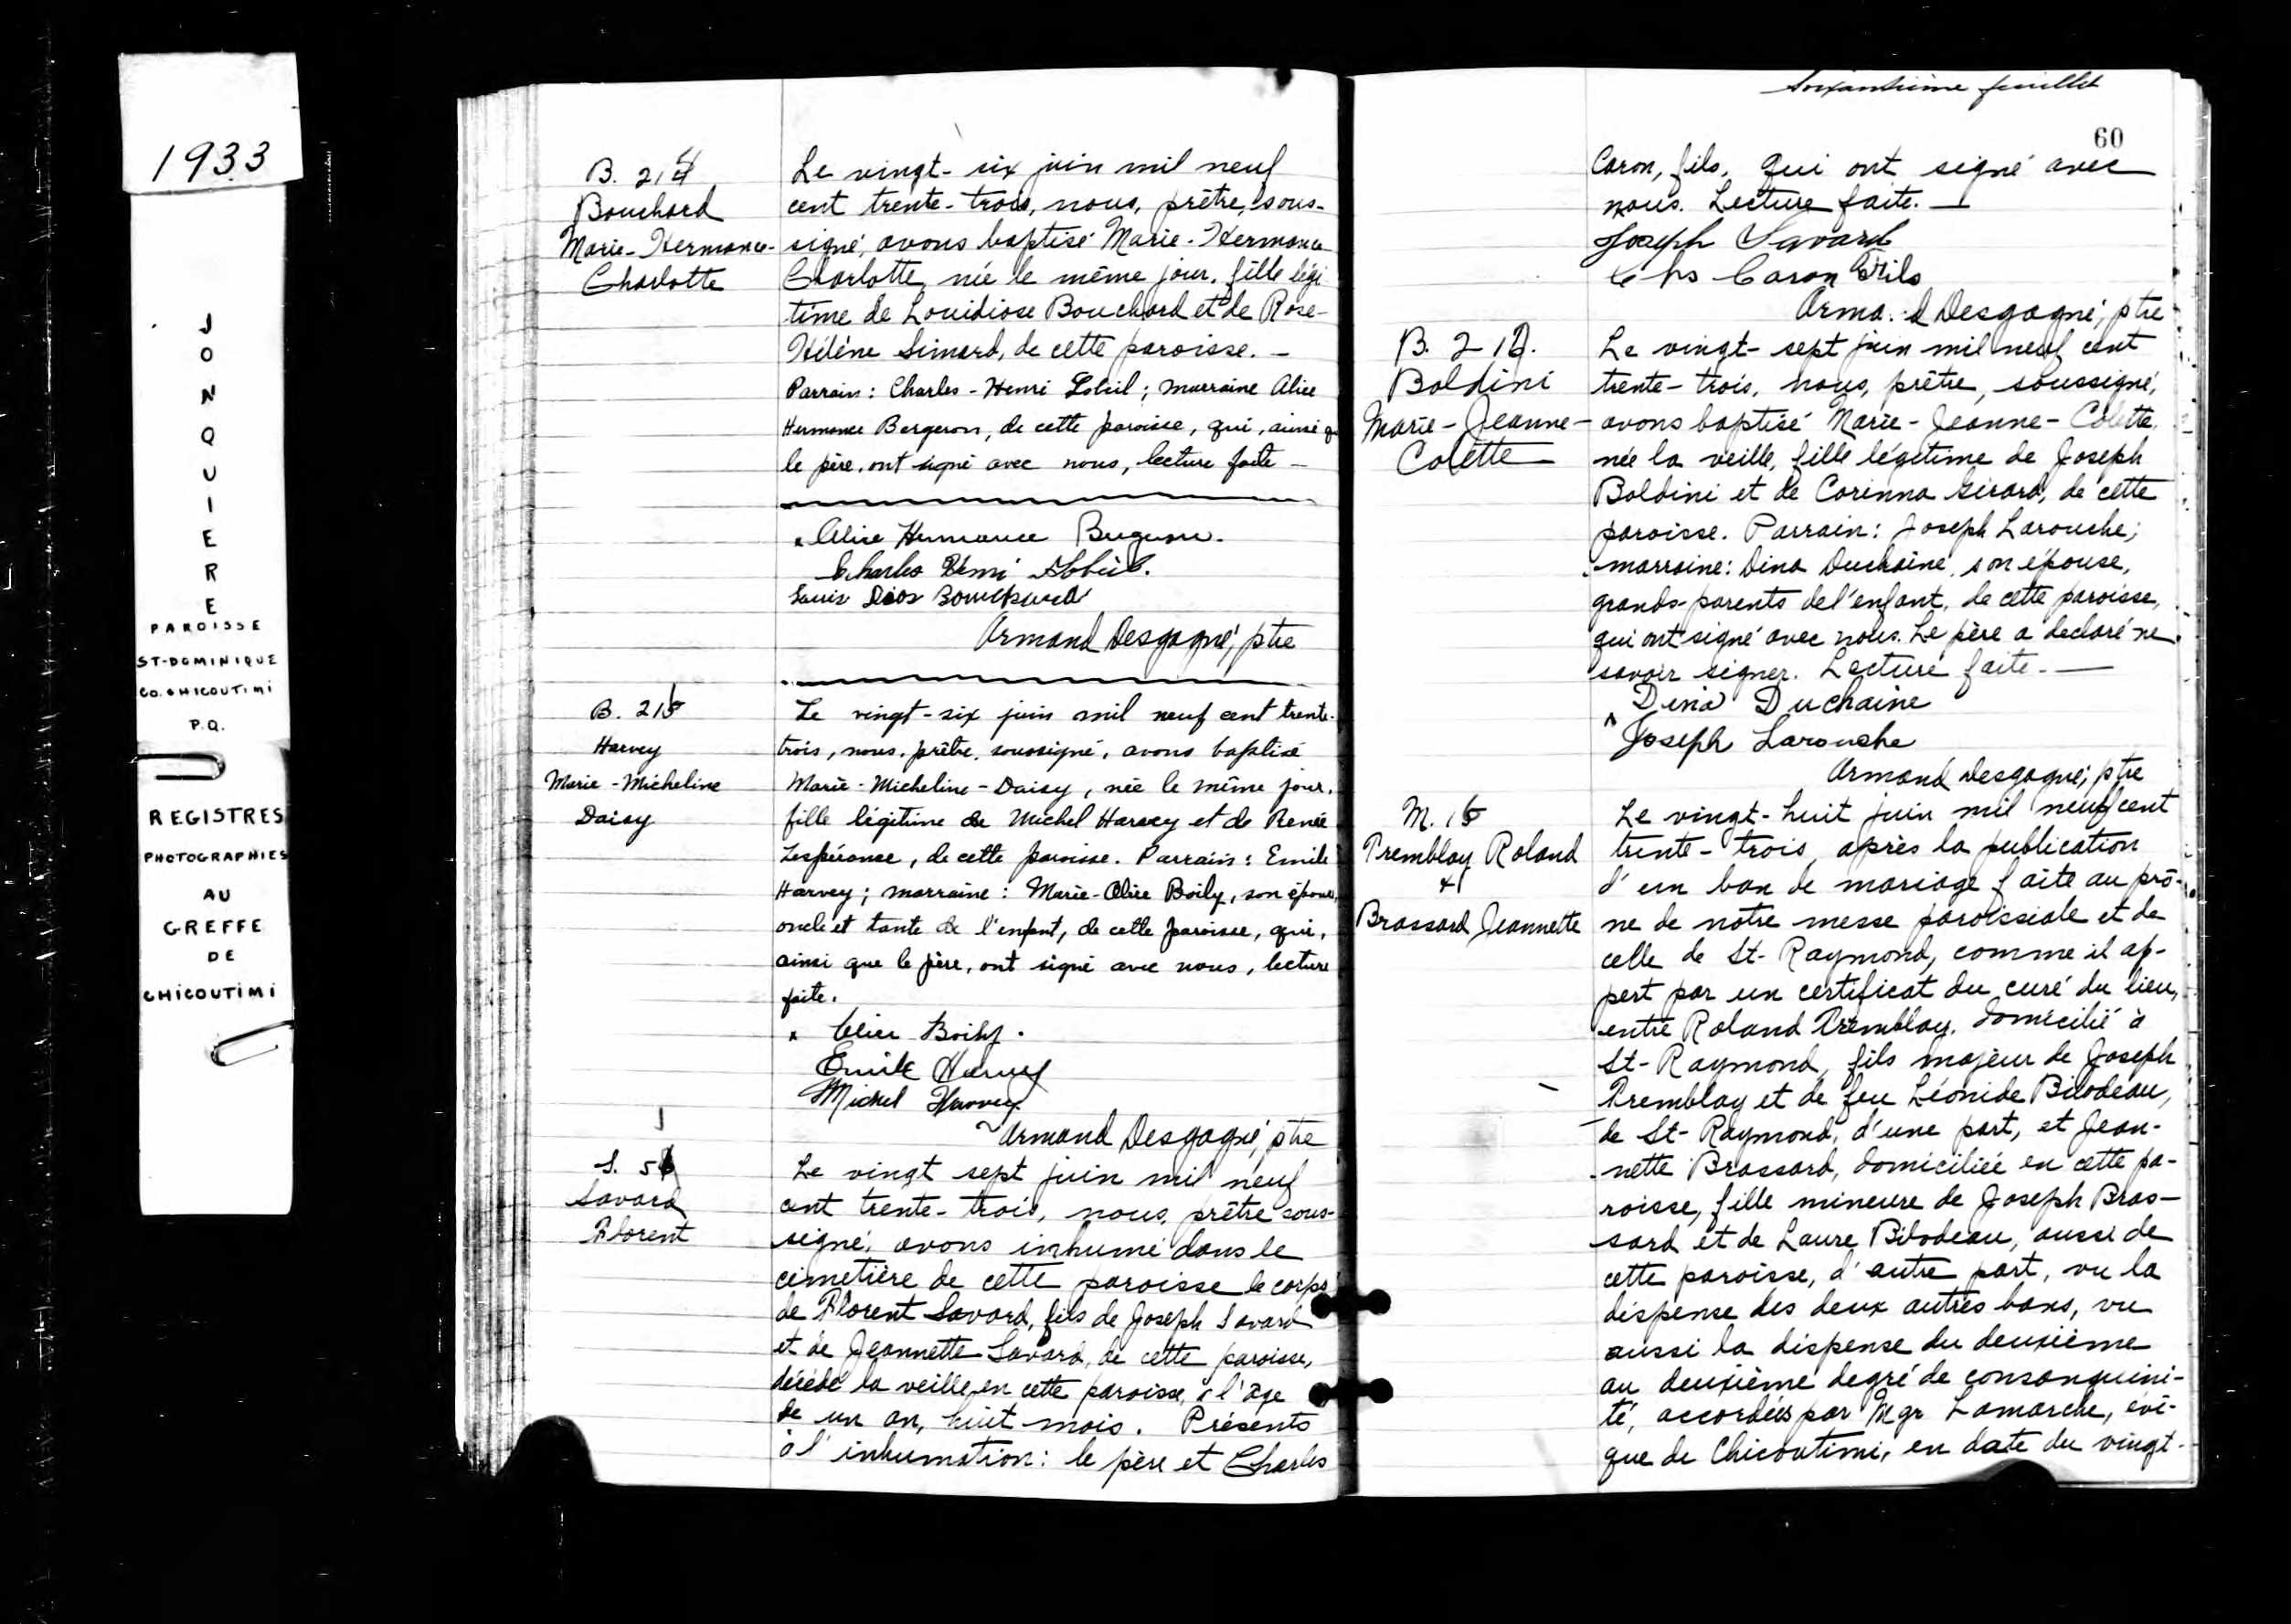 1933
JONQUIERE
PAROISSE
ST-DOMINIQUE
CO. CHICOUTIMI
P.Q.
REGISTRES
PHOTOGRAPHIES
AU
GREFFE
DE
CHICOUTIMI
B. 214
Bouchard
Marie-Hermance-
Charlotte
Le vingt-six juin mil neuf
cent trente-trois, nous, prêtre, sous-
signé, avons baptisé Marie-Hermance
Charlotte, née le même jour, fille légi
time de Louidiose Bouchard et de Rose-
Hélène Simard, de cette paroisse. -
Parrain: Charles-Henri ; marraine Alice
Hermance Bergeron, de cette paroisse, qui, ainsi q
le père, ont signé avec nous, lecture faite -
x Alice Hermance
Charles Henri
Louis Bouchard
Armand Desgagné, ptre
B. 215
Harvey
Marie-Micheline
Daisy
Le vingt-six juin mil neuf cent trente-
trois, nous, prêtre, soussigné, avons baptisé
Marie-Micheline-Daisy, née le même jour,
fille légitime de Michel Harvey et de Renée
Lespérance, de cette paroisse. Parrain: Emile
Harvey; marraine: Marie-Alice Boily, son épouse,
oncle et tante de l'enfant, de cette paroisse, qui,
ainsi que le père, ont signé avec nous, lecture
faite.
x Alice Boily.
Emile Harvey
Michel Harvey
Armand Desgagné, ptre
S. 5
Savard
Florent
Le vingt sept juin mil neuf
cent trente-trois, nous, prêtre sous-
signé, avons inhumé dans le
cimetière de cette paroisse le corps
de Florent Savard, fils de Joseph Savard
et de Jeannette Savard, de cette paroisse,
décédé la veille en cette paroisse, à l'âge
de un an, huit mois. Présents
à l'inhumation: le père et Charles
Soixantième feuillet
60
Caron, fils, qui ont signé avec
nous. Lecture faite. -
Joseph Savard
Chs Caron Fils
Arma. d Desgagné, ptre
B. 21
Boldini
Marie-Jeanne-
Colette
Le vingt-sept juin mil neuf cent
trente-trois, nous, prêtre, soussigné,
avons baptisé Marie-Jeanne-Colette,
née la veille, fille légitime de Joseph
Boldini et de Corinna Girard, de cette
paroisse. Parrain: Joseph Larouche;
marraine: Dina Duchaine, son épouse,
grands-parents de l'enfant, de cette paroisse,
qui ont signé avec nous. Le père a déclaré ne
savoir signer. Lecture faite. -
x Dina Duchaine
Joseph Larouche
Armand Desgagné, ptre
M. 15
Tremblay Roland
&
Brassard Jeannette
Le vingt-huit juin mil neuf cent
trente-trois, après la publication
d'un ban de mariage faite au prô-
ne de notre messe paroissiale et de
celle de St-Raymond, comme il ap-
pert par un certificat du curé du lieu,
entre Roland Tremblay, domicilié à
St-Raymond, fils majeur de Joseph
Tremblay et de feu Léonide Bilodeau,
de St-Raymond, d'une part, et Jean-
nette Brassard, domiciliée en cette pa-
roisse, fille mineure de Joseph Bras-
sard et de Laure Bilodeau, aussi de
cette paroisse, d'autre part, vu la
dispense des deux autres bans, vu
aussi la dispense du deuxième
au deuxième degré de consanguini-
té, accordées par Mgr Lamarche, évê-
que de Chicoutimi, en date du vingt-